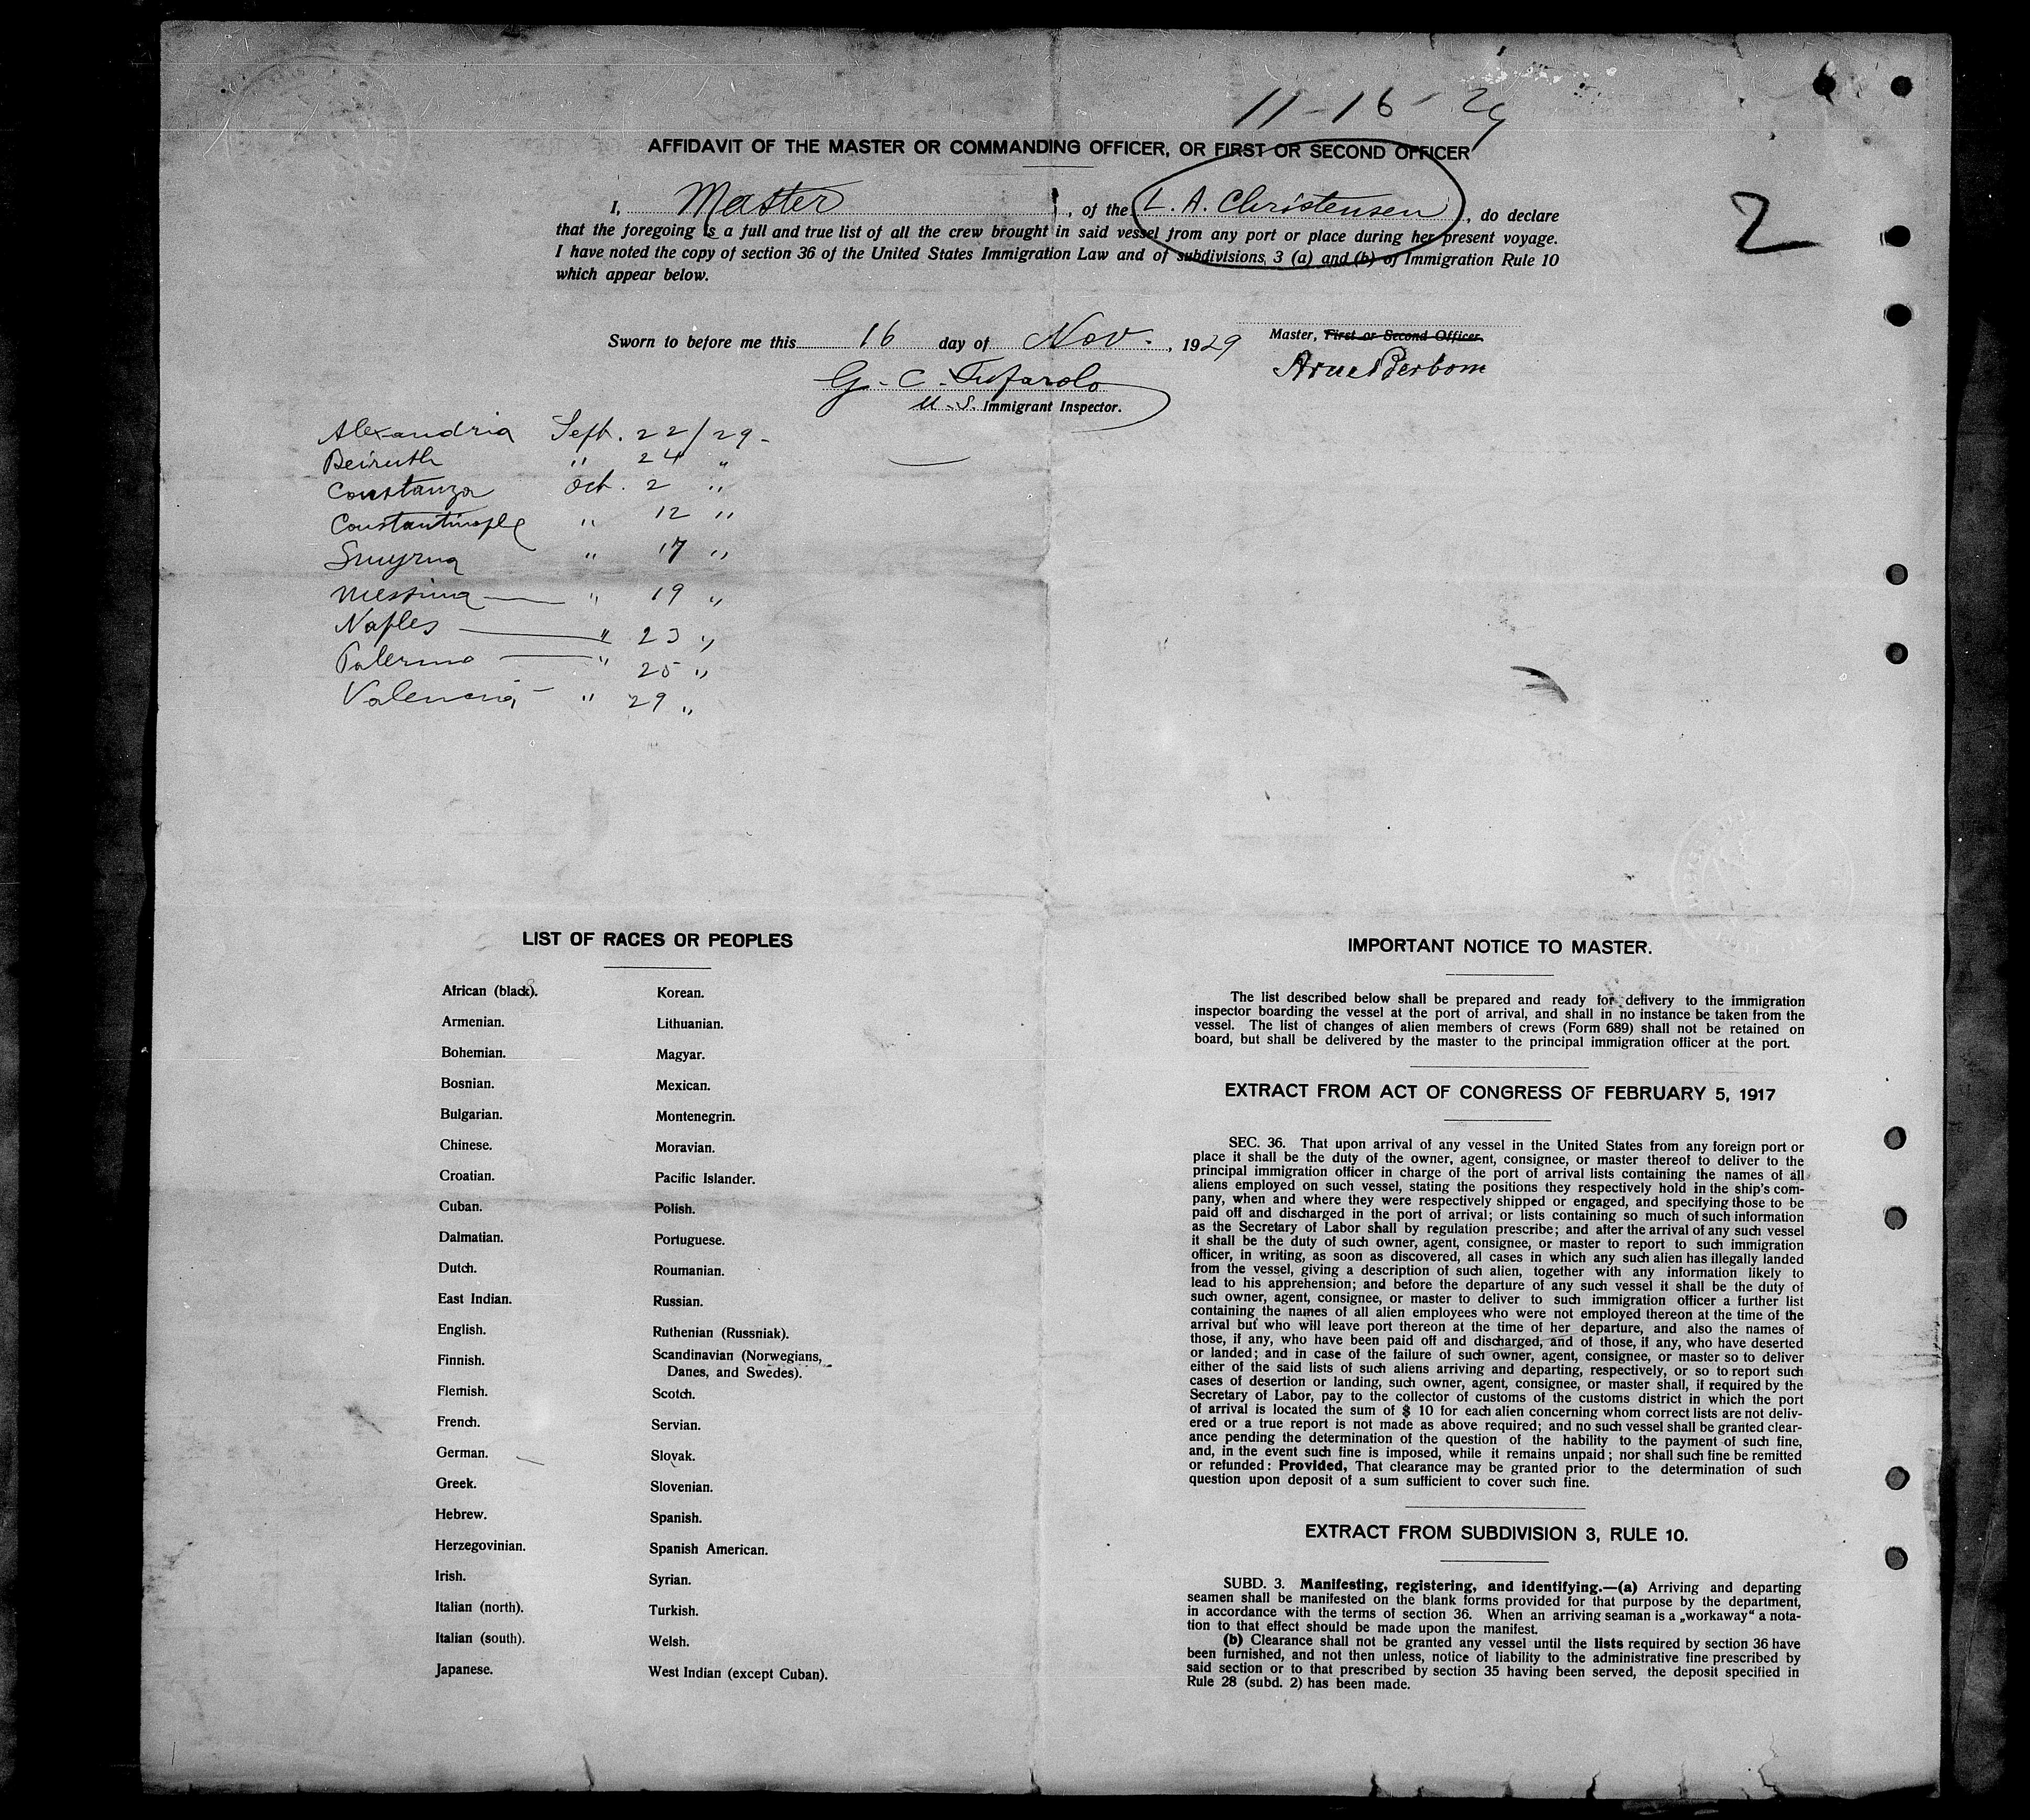 11-16-29
AFFIDAVIT OF THE MASTER OR COMMANDING OFFICER, OR FIRST OR SECOND OFFICER
2
I, Master, of the L. A. Christensen, do declare
that the foregoing is a full and true list of all the crew brought in said vessel from any port or place during her present voyage.
I have noted the copy of section 36 of the United States Immigration Law and of subdivisions 3 (a) and (b) of Immigration Rule 10
which appear below.
Sworn to before me this 16 day of Nov., 1929
Master, First or Second Officer.
G. C.
U.S. Immigrant Inspector.
Alexandria Sept. 22/29-
Beiruth " 24 "
Constanza Oct. 2 "
Constantinople " 12 "
Smyrna " 17 "
Messina " 19 "
Naples " 23 "
Palermo " 25 "
Valencia " 29 "
LIST OF RACES OR PEOPLES
African (black).
Armenian.
Bohemian.
Bosnian.
Bulgarian.
Chinese.
Croatian.
Cuban.
Dalmatian.
Dutch.
East Indian.
English.
Finnish.
Flemish.
French.
German.
Greek.
Hebrew.
Herzegovinian.
Irish.
Italian (north).
Italian (south).
Japanese.
Korean.
Lithuanian.
Magyar.
Mexican.
Montenegrin.
Moravian.
Pacific Islander.
Polish.
Portuguese.
Roumanian.
Russian.
Ruthenian (Russniak).
Scandinavian (Norwegians,
Danes, and Swedes).
Scotch.
Servian.
Slovak.
Slovenian.
Spanish.
Spanish American.
Syrian.
Turkish.
Welsh.
West Indian (except Cuban).
IMPORTANT NOTICE TO MASTER.
The list described below shall be prepared and ready for delivery to the immigration
inspector boarding the vessel at the port of arrival, and shall in no instance be taken from the
vessel. The list of changes of alien members of crews (Form 689) shall not be retained on
board, but shall be delivered by the master to the principal immigration officer at the port.
EXTRACT FROM ACT OF CONGRESS OF FEBRUARY 5, 1917
SEC. 36. That upon arrival of any vessel in the United States from any foreign port or
place it shall be the duty of the owner, agent, consignee, or master thereof to deliver to the
principal immigration officer in charge of the port of arrival lists containing the names of all
aliens employed on such vessel, stating the positions they respectively hold in the ship's com-
pany, when and where they were respectively shipped or engaged, and specifying those to be
paid off and discharged in the port of arrival; or lists containing so much of such information
as the Secretary of Labor shall by regulation prescribe; and after the arrival of any such vessel
it shall be the duty of such owner, agent, consignee, or master to report to such immigration
officer, in writing, as soon as discovered, all cases in which any such alien has illegally landed
from the vessel, giving a description of such alien, together with any information likely to
lead to his apprehension; and before the departure of any such vessel it shall be the duty of
such owner, agent, consignee, or master to deliver to such immigration officer a further list
containing the names of all alien employees who were not employed thereon at the time of the
arrival but who will leave port thereon at the time of her departure, and also the names of
those, if any, who have been paid off and discharged, and of those, if any, who have deserted
or landed; and in case of the failure of such owner, agent, consignee, or master so to deliver
either of the said lists of such aliens arriving and departing, respectively, or so to report such
cases of desertion or landing, such owner, agent, consignee, or master shall, if required by the
Secretary of Labor, pay to the collector of customs of the customs district in which the port
of arrival is located the sum of $ 10 for each alien concerning whom correct lists are not deliv-
ered or a true report is not made as above required; and no such vessel shall be granted clear-
ance pending the determination of the question of the hability to the payment of such fine,
and, in the event such fine is imposed, while it remains unpaid; nor shall such fine be remitted
or refunded: Provided, That clearance may be granted prior to the determination of such
question upon deposit of a sum sufficient to cover such fine.
EXTRACT FROM SUBDIVISION 3, RULE 10.
SUBD. 3. Manifesting, registering, and identifying.—(a) Arriving and departing
seamen shall be manifested on the blank forms provided for that purpose by the department,
in accordance with the terms of section 36. When an arriving seaman is a „workaway“ a nota-
tion to that effect should be made upon the manifest.
(b) Clearance shall not be granted any vessel until the lists required by section 36 have
been furnished, and not then unless, notice of liability to the administrative fine prescribed by
said section or to that prescribed by section 35 having been served, the deposit specified in
Rule 28 (subd. 2) has been made.